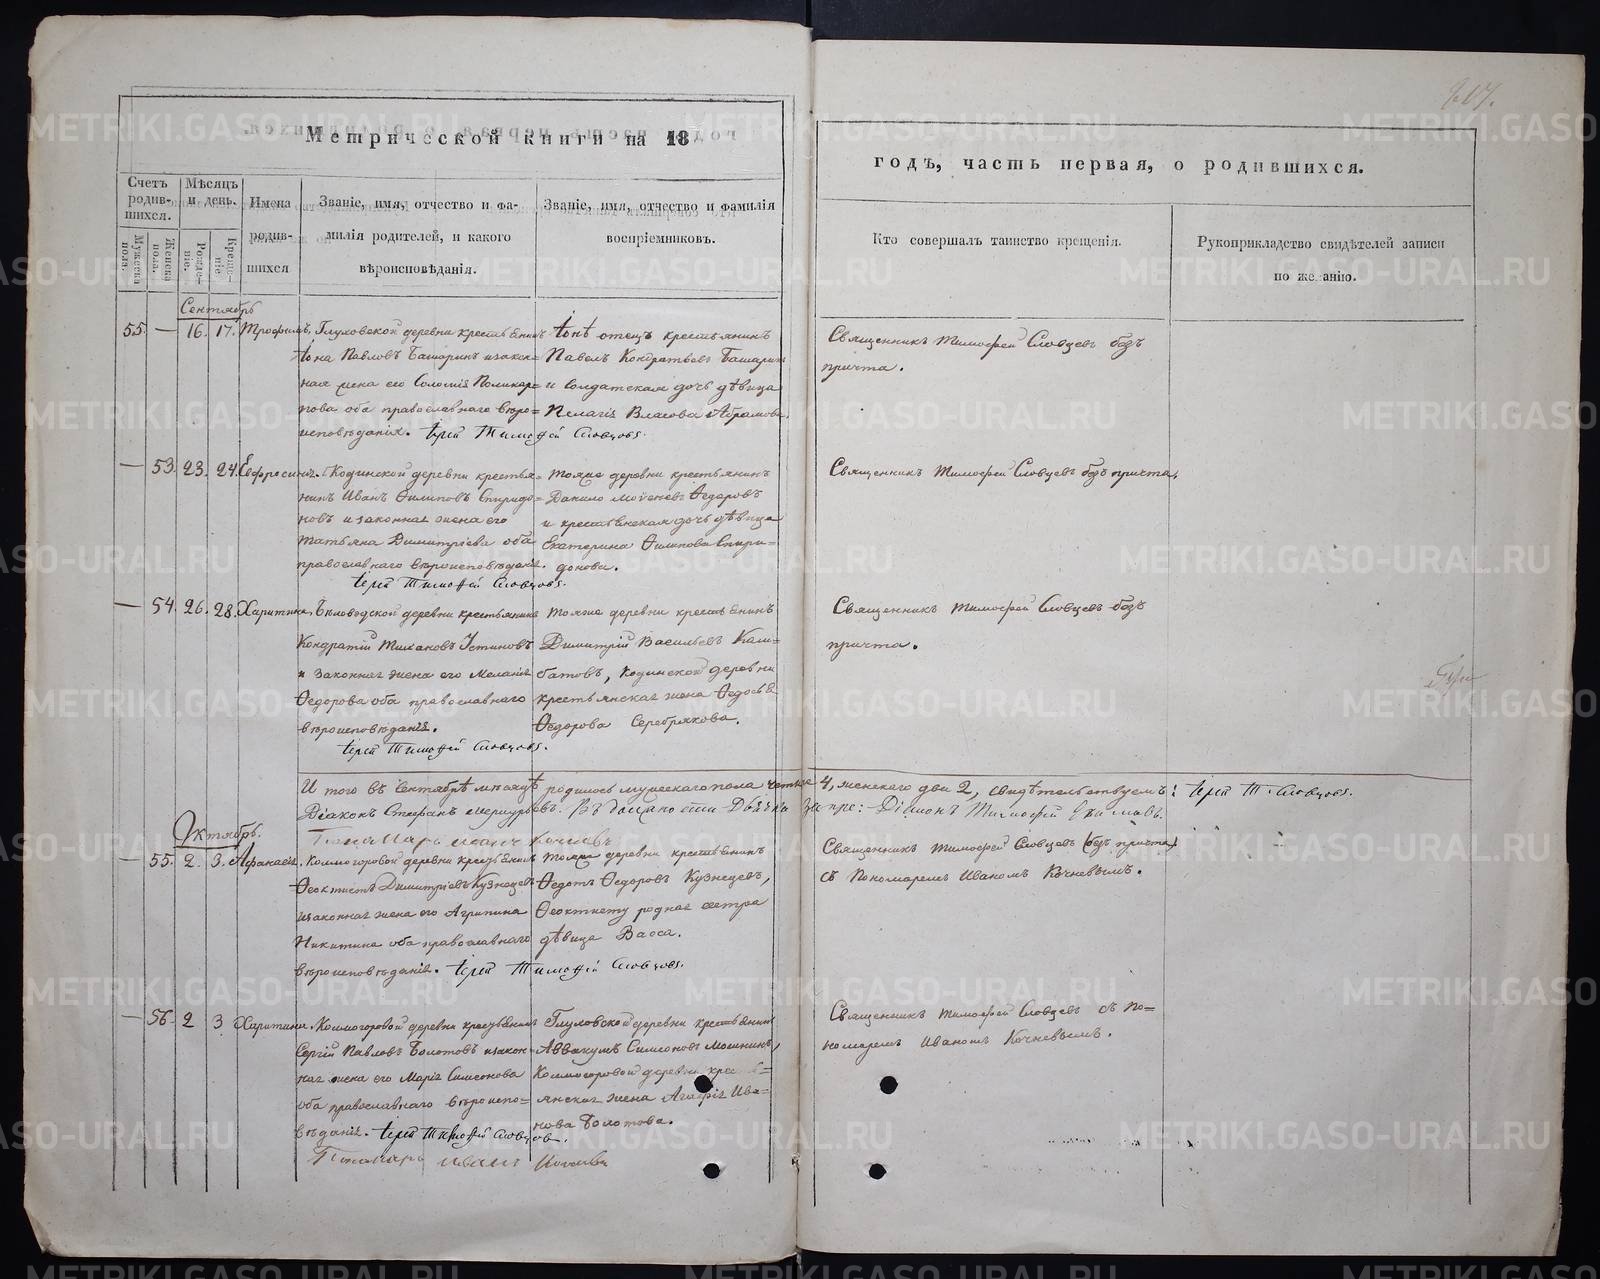 Метрической книги на 18
годъ, часть первая, о родившихся.
Счетъ родив-шихся.
Мѣсяцъ и день.
Имена родив-шихся
Званіе, имя, отчество и фа-
милія родителей, и какого
вѣроисповѣданія.
Званіе, имя, отчество и фамилія
воспріемниковъ.
Кто совершалъ таинство крещенія.
Рукоприкладство свидѣтелей записи
по желанію.
Мужеска пола.
Женска пола.
Рожде-ніе.
Креще-ніе
Сентябрь
55. — 16. 17. Трофимъ.
Глуховской деревни крестьянинъ
Іона Павловъ Башаринъ и закон-
ная жена его Соломія Поликар=
пова оба православнаго вѣро=
исповѣданія. Іерей Тимофей Словцовъ.
Іонѣ отецъ крестьянинъ
Павелъ Кондратьевъ Башаринъ
и солдатская дочь дѣвица
Пелагія Власова Абрамова.
Священникъ Тимофей Словцевъ безъ
причта.
— 53. 23. 24. Евфросинія.
Кодинской деревни крестья=
нинъ Иванъ Филиповъ Спиридо=
новъ и законная жена его
Татьяна Димитріева оба
православнаго вѣроисповѣданія.
Іерей Тимофей Словцовъ.
Тояже деревни крестьянинъ
Данило Федоровъ
и крестьянская дочь дѣвица
Екатерина Филипова Спири=
донова.
Священникъ Тимофей Словцевъ безъ причта.
— 54. 26. 28. Харитина.
деревни крестьянинъ
Кондратій Устиновъ
и законная жена его Меланія
Федорова оба православнаго
вѣроисповѣданія.
Іерей Тимофей Словцовъ.
Тояже деревни крестьянинъ
Димитрій Васильевъ
Кодинской деревни
крестьянская жена Федосья
Федорова Серебрякова.
Священникъ Тимофей Словцевъ безъ
причта.
И того въ Сентябрѣ мѣсяцѣ родилось мужескаго пола четыре 4, женскаго два 2, свидѣтельствуемъ: Іерей Т. Словцовъ.
Діаконъ Стефанъ
Пономарь Иванъ Кочневъ
Октябрь.
— 55. 2. 3. Афанасія.
Колмогоровой деревни крестьянинъ
Феоктистъ Димитріевъ Кузнецевъ
и законная жена его Агрипина
Никитина оба православнаго
вѣроисповѣданія. Іерей Тимофей Словцовъ.
Тояже деревни крестьянинъ
Федотъ Федоровъ Кузнецевъ,
Феоктисту родная сестра
дѣвица Васса.
Священникъ Тимофей Словцевъ (безъ причта)
съ Пономаремъ Иваномъ Кочневымъ.
— 56. 2 3 Харитина.
Колмогоровой деревни крестьянинъ
Сергій Павловъ Болотовъ и закон=
ная жена его Марія Симеонова
оба православнаго вѣроиспо=
вѣданія. Іерей Тимофей Словцовъ.
Пономарь Иванъ Кочневъ
Глуховской деревни крестьянинъ
Аввакумъ Симеоновъ
Колмогоровой деревни кресть=
янская жена Агафія Ива=
нова Болотова.
Священникъ Тимофей Словцевъ съ По=
номаремъ Иваномъ Кочневымъ.
METRIKI.GASO-URAL.RU